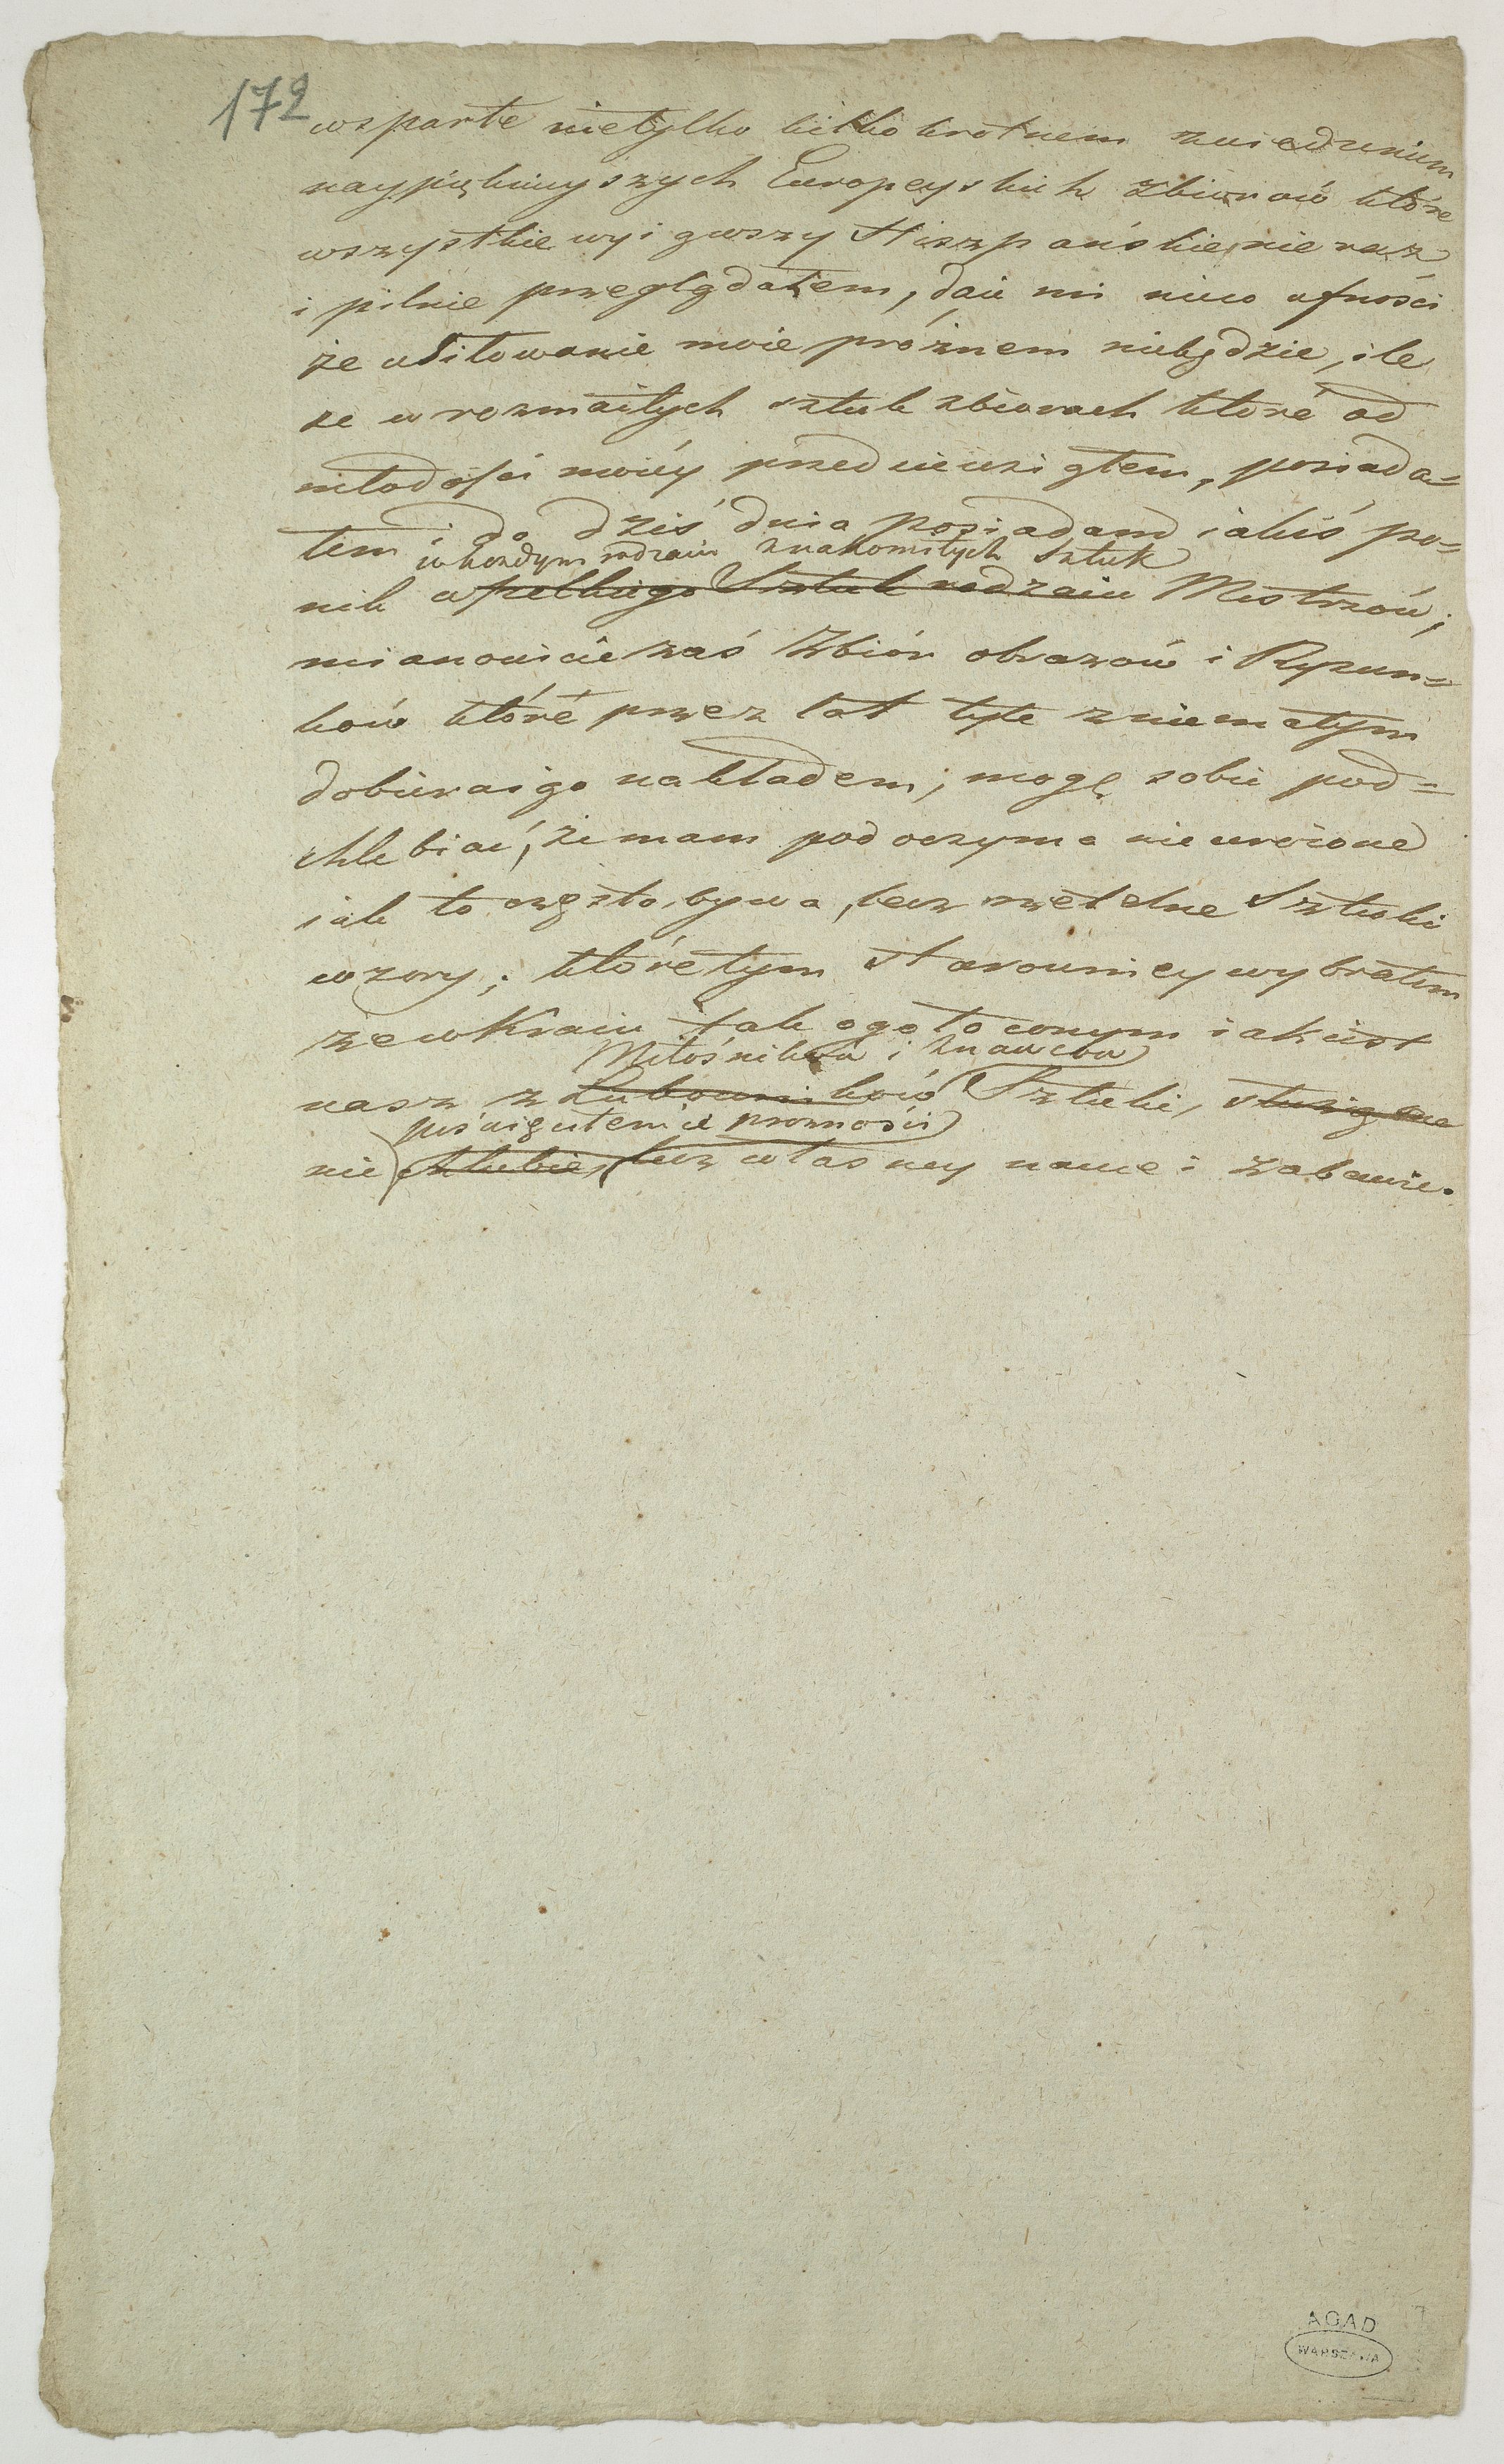 172
wsparte nietylko kilkokrotnem zwiedzeniem
naypięknieyszych Europeyskich zbiorów które
wszystkie wyiąwszy Hiszpańskie, nie raz
i pilnie przeglądałem, daie mi nieco ufności
że usiłowanie moie próżnem niebędzie, ile
że w rozmaitych sztuk zbiorach które od
młodości moiéy przedsiewziąłem, posiada=
łem i do dziś dnia posiadam iakiś po=
w każdym rodzaiu znakomitych Sztuk
nik wszelkiego Sztuk rodzaiu Mistrzów;
mianowicie zaś Zbiór obrazów i Rysun=
ków któré przez lat tyle z niemałym
dobieraiąc nakładem, mogę sobie pod=
chlebiać, że mam pod oczyma nie uroione
iak to często bywa, lecz rzetelne Sztuki
wzory; któré tym starowniey wybrałem
że w Kraiu tak ogołoconym iak iest
Miłośników i znawców
nasz z Lubowników Sztuki, służą one
poświęcenie prozności
nie chlubie, lecz własney nauce i zabawie.
AGAD
WARSZAWA